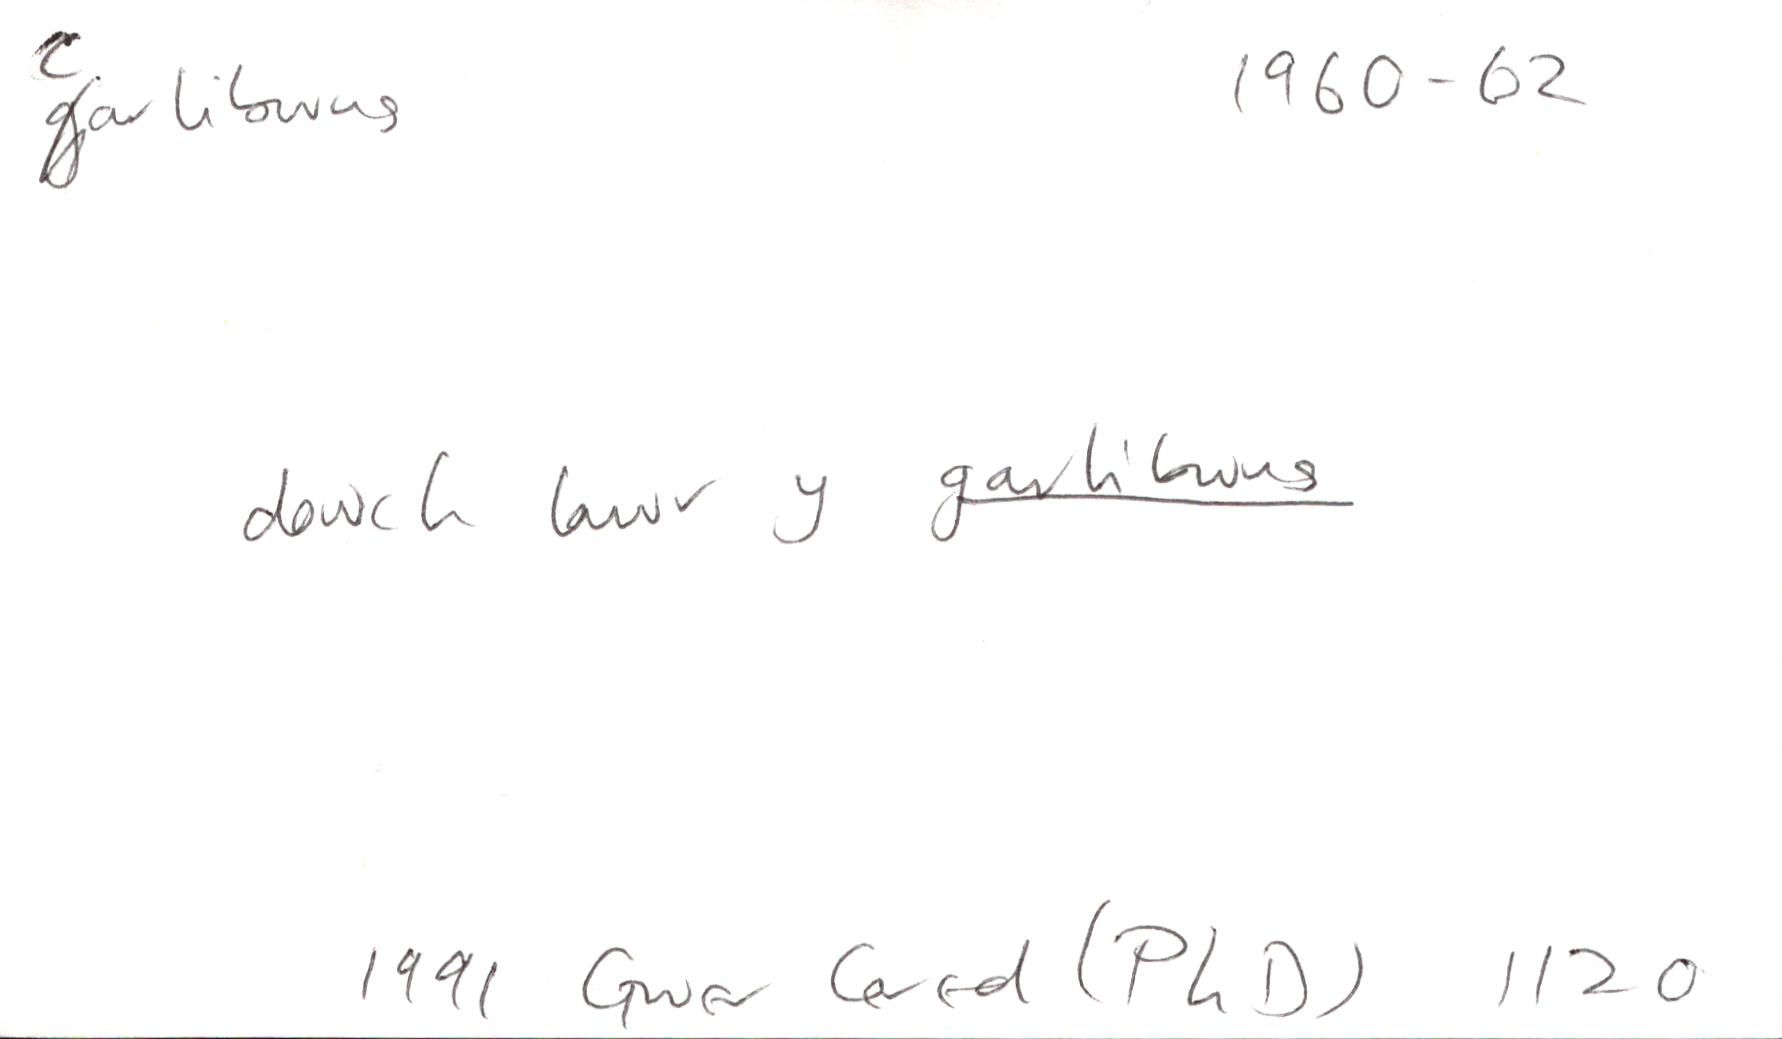 carlibwns 1960-62
dowch lawr y garlibwns
1991 Gwer Cered (PhD) 1120